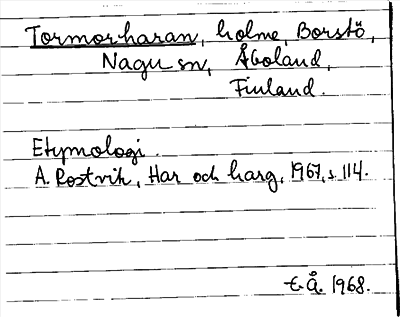 Tormorharan, holme, Borstö,
Nagu sn, Åboland,
Finland.
Etymologi.
A. Rostvik, Har och harg, 1967, s. 114.
E. Å. 1968.